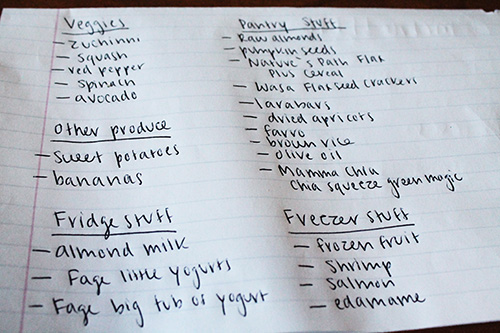 Veggies
- zuchinni
- squash
- red pepper
- spinach
- avocado
Other produce
- sweet potatoes
- bananas
Fridge stuff
- almond milk
- Fage little yogurts
- Fage big tub of yogurt
Pantry Stuff
- Raw almonds
- pumpkin seeds
- Nature's Path Flax
Plus Cereal
- Wasa Flaxseed Crackers
- larabars
- dried apricots
- farro
- brown rice
- olive oil
- Mamma Chia
Chia squeeze green magic
Freezer Stuff
- frozen fruit
- Shrimp
- Salmon
- edamame